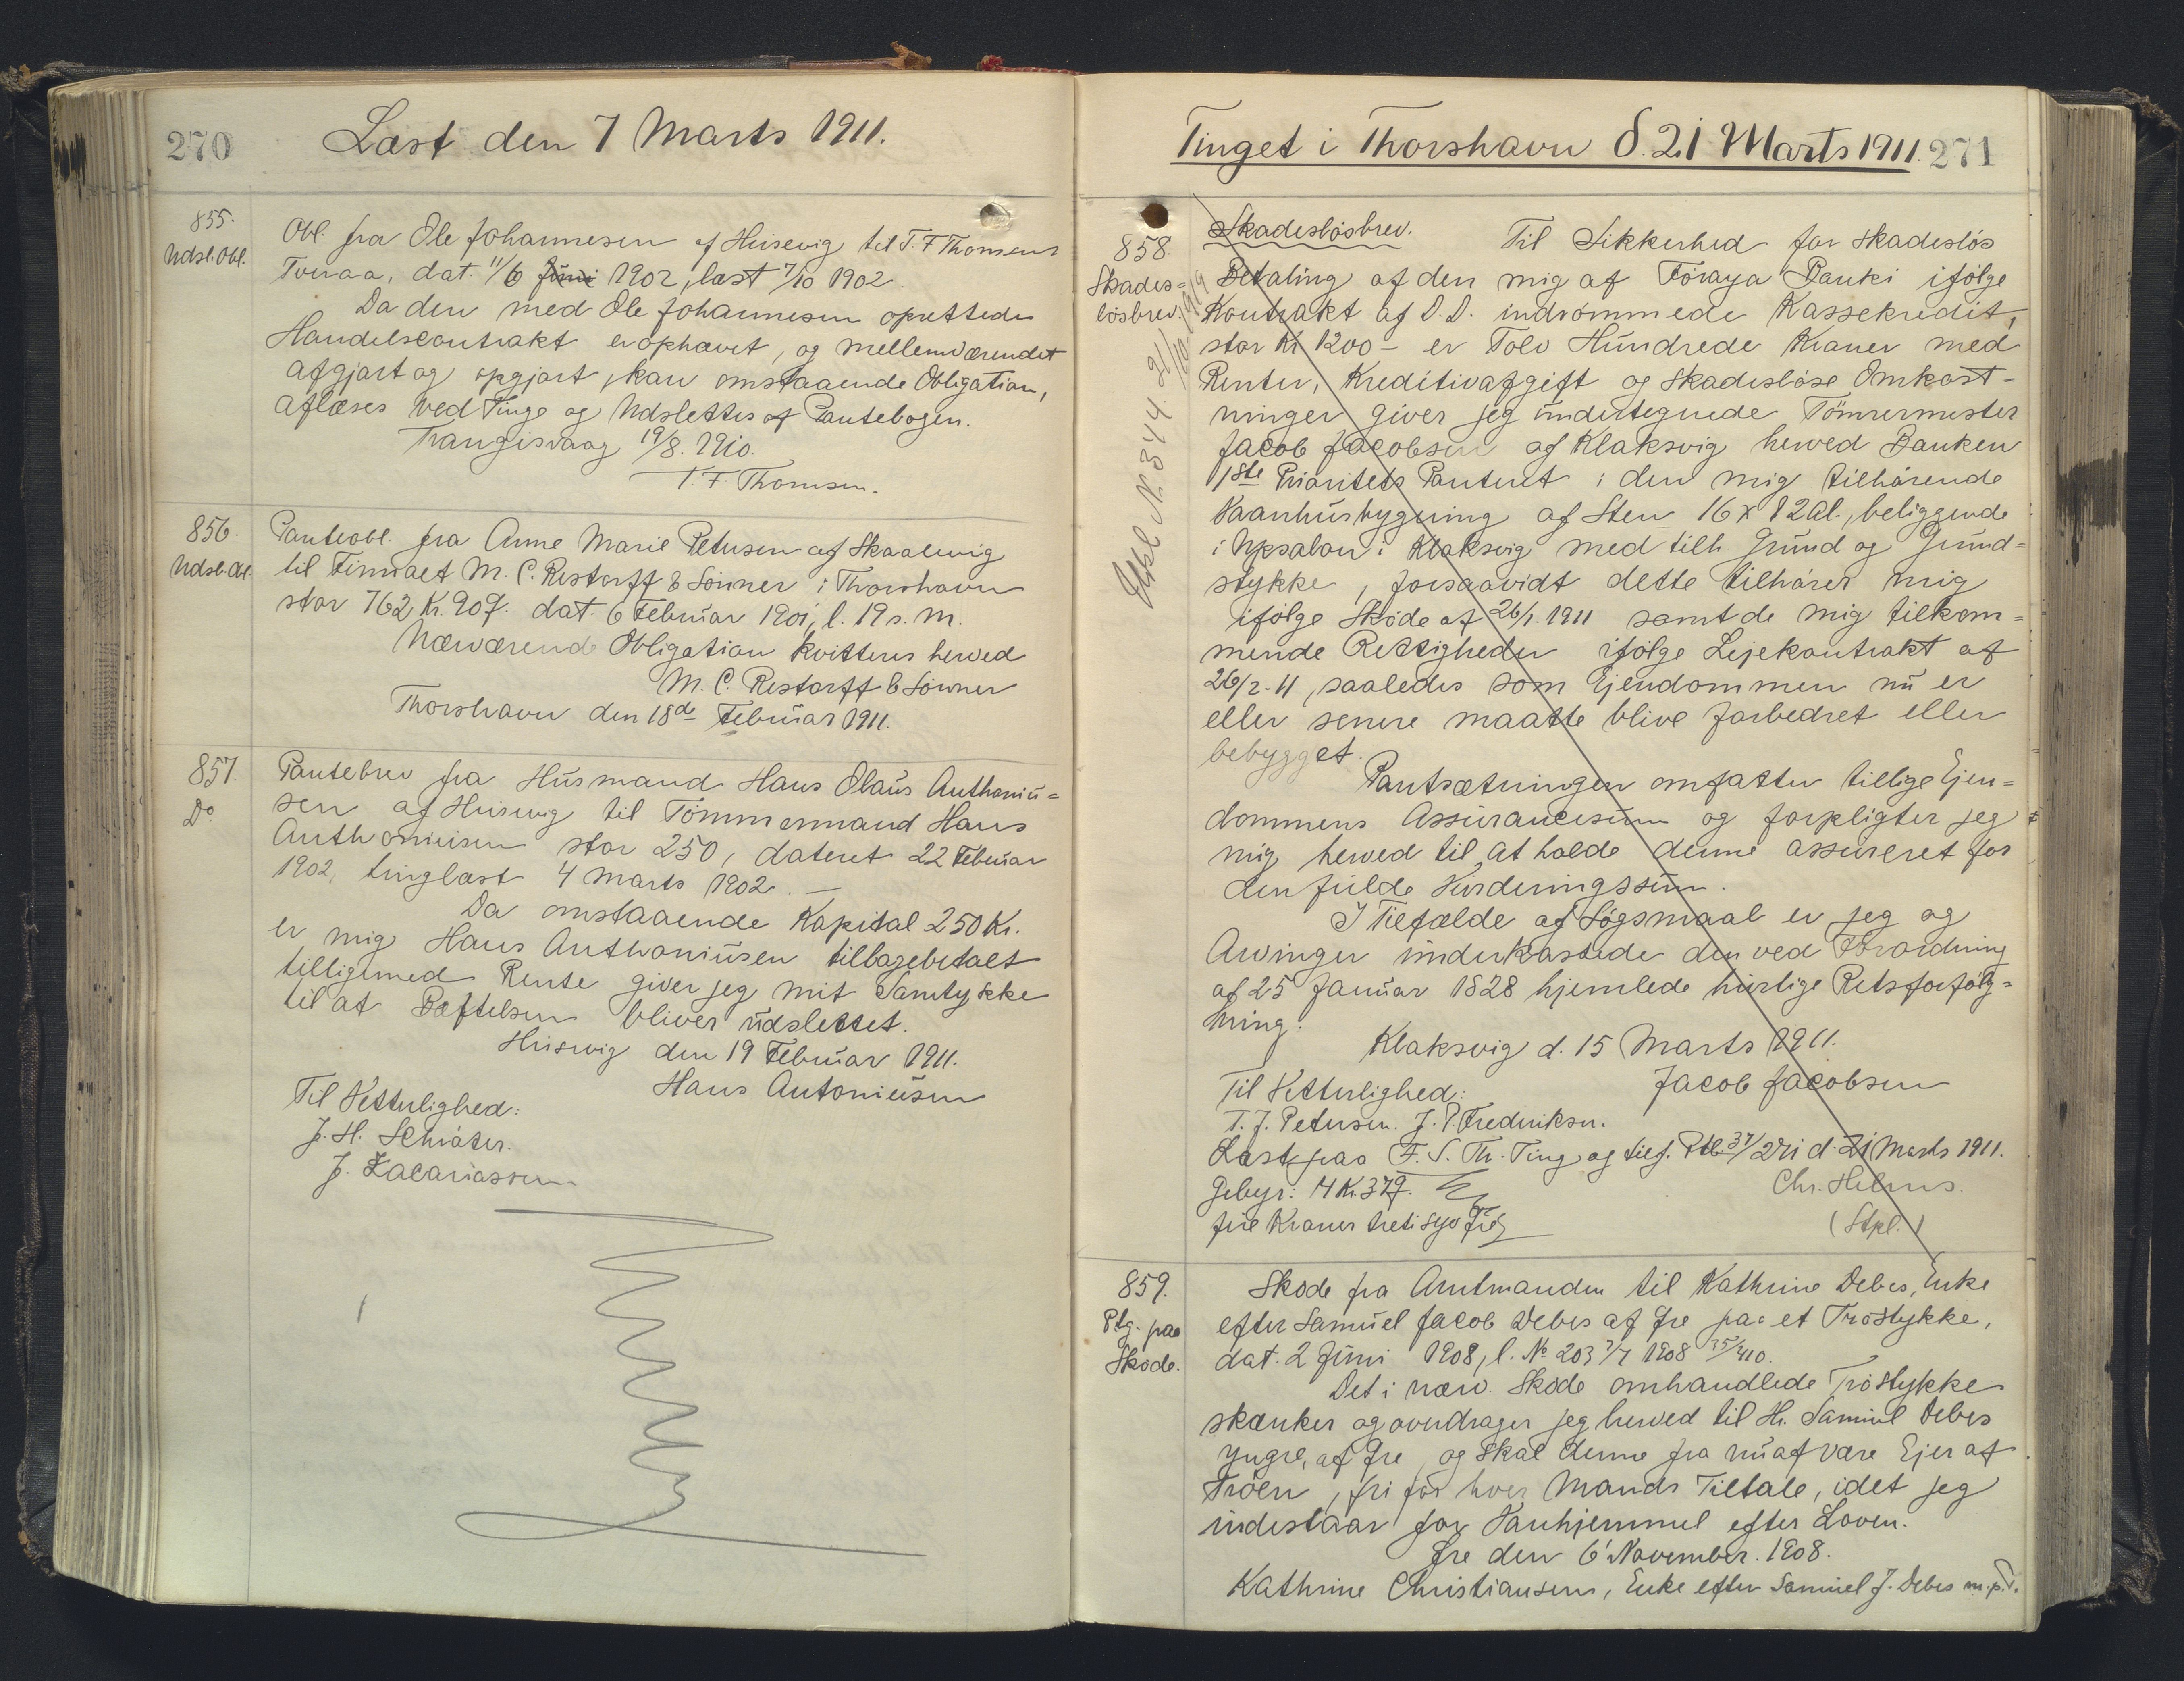 270
Læst den 7 Marts 1911.
855.
Udsl. Obl.
Obl. fra Ole Johannesen af Husevig til T. F Thomsen
Tveraa, dat. 11/6 Juni 1902, læst 7/10 1902.
Da den med Ole Johannesen oprettede
Handelscontrakt er ophævet, og mellemværendet
afgjort og opgjort, kan omstaaende Obligation,
aflæses ved Tinge og Udslettes af Pantebogen.
Trangisvaag 19/8. 1910.
T. F. Thomsen.
856.
Udsl. Obl.
Panteobl. fra Anne Marie Petersen af Skaalevig
til Firmaet M. C. Restorff & Sönner i Thorshavn
stor 762 Kr. 90 Ø. dat. 6 Februar 1901, l. 19 s. M.
Nærværende Obligation kvitteres herved
M. C. Restorff & Sönner
Thorshavn den 18de Februar 1911.
857.
Do
Pantebrev fra Husmand Hans Olaus Anthoniu=
sen af Husevig til Tømmermand Hans
Anthoniusen stor 250, dateret 22 Februar
1902, tinglæst 4 Marts 1902. —
Da omstaaende Kapital 250 Kr.
er mig Hans Anthoniusen tilbagebetalt
tilligemed Rente giver jeg mit Samtykke
til at Hæftelsen bliver udslettet.
Husevig den 19 Februar 1911.
Hans Antoniusen
Til Vitterlighed:
J. H. Schröter.
J. Zacariassen
Tinget i Thorshavn d. 21 Marts 1911.
271
858.
Skades=
lösbrev.
Udsl. Nr. 344. 21/10 1919
Skadeslösbrev. Til Sikkerhed for skadeslös
Betaling af den mig af Föroya Banki ifölge
Kontrakt af D.D. indrömmede Kassekredit,
stor Kr 1200 – er Tolv Hundrede Kroner med
Renter, Kreditivafgift og skadeslöse Omkost-
ninger giver jeg undertegnede Tömrermester
Jacob Jacobsen af Klaksvig herved Banken
1ste Prioritets Panteret i den mig tilhörende
Vaanhusbygning af Sten 16 x 12 al., beliggende
i Upsalon i Klaksvig med tilh. Grund og Grund=
stykke, forsaavidt dette tilhörer mig
ifölge Sköde af 26/1. 1911 samt de mig tilkom=
mende Rettigheder ifölge Lejekontrakt af
26/2-11, saaledes som Ejendommen nu er
eller senere maatte blive forbedret eller
bebygget.
Pantsætningen omfatter tillige Ejen=
dommens Assurancesum og forpligter jeg
mig herved til at holde denne assureret for
den fulde Vurderingssum.
I Tilfælde af Søgsmaal er jeg og
Arvinger underkastede den ved Forordning
af 25 Januar 1828 hjemlede hurtige Retsforfölg=
ning.
Klaksvig d. 15 Marts 1911.
Jacob Jacobsen
Til Vitterlighed:
T. J. Petersen. J. P. Frederiksen.
Læst paa F. S. Th. Ting og tilf. Ptb. 37/271 d. 21 Marts 1911.
Gebyr: 4 Kr. 37 Ø.
Chr. Helms.
fire Kroner treti syv Öre
(Stpl.)
859.
Ptg. paa
Sköde.
Sköde fra Amtmanden til Kathrine Debes, Enke
efter Samuel Jacob Debes af Gre paa et Tröstykke,
dat. 2 Juni 1908, l. No 203 7/7 1908 35/410.
Det i nærv. Sköde omhandlede Tröstykke
skænker og overdrager jeg herved til Hr. Samuel Debes
yngre, af Gre, og skal denne fra nu af være Ejer af
Tröen, fri for hver Mands Tiltale, idet jeg
indestaar for Vanhjemmel efter Loven.
Gre den 6' November. 1908.
Kathrine Christiansen, Enke efter Samuel J. Debes m.p.P.